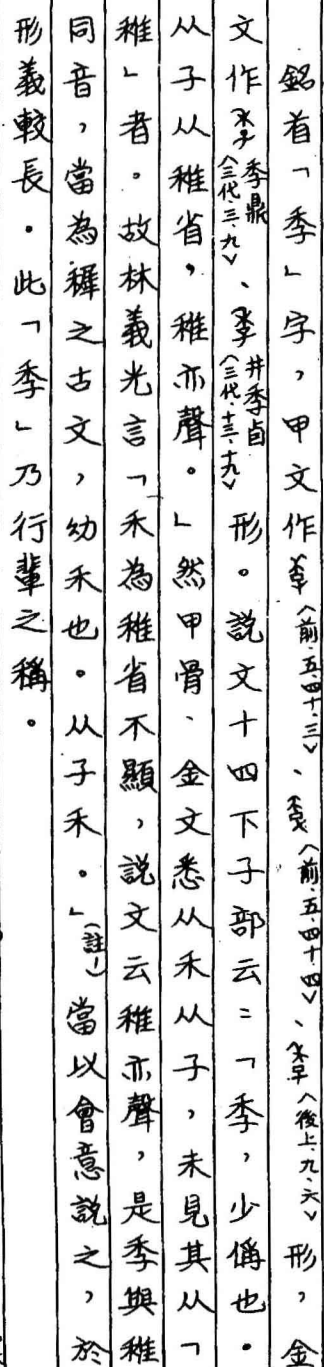 銘首「季」字，甲文作〈前．五．四十．三〉、〈前．五．四十．四〉、〈後上．九．六〉形，金
文作季鼎〈三代．三．九〉、井季卣〈三代．十三．十九〉形。說文十四下子部云：「季，少偁也．
从子从稚省，稚亦聲。」然甲骨、金文悉从禾从子，未見其从「
稚」者。故林義光言「禾為稚省不顯，說文云稚亦聲，是季與稚
同音，當為穉之古文，幼禾也。从子禾。」(註1)當以會意說之，於
形義較長．此「季」乃行輩之稱。